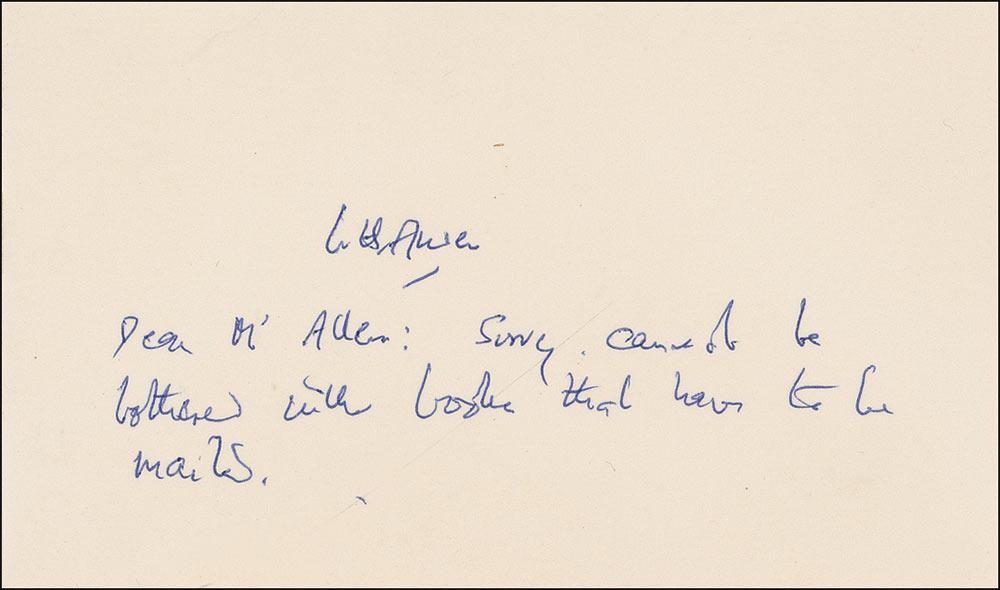 W.H. Auden
Dear Mr Allen: Sorry. cannot be
bothered with books that have to be
mailed.